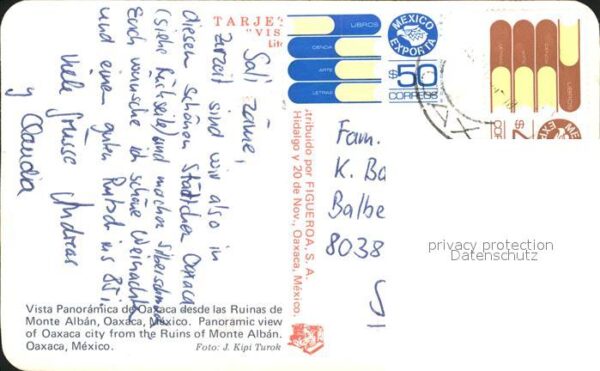 TARJE
"VIS
Lit
Sali zäme,
Zurzeit sind wir also in
diesem schönen Städtchen Oaxaca
(siehe Rückseite) und machen
Euch wünsche ich schöne Weihnachten
und einen guten Rutsch ins 85!
Viele Grüsse Andreas
y Claudia
LIBROS
CIENCIA
ARTE
LETRAS
MEXICO
EXPORTA
$50
CORREOS
LIBROS
MEXICO
tribuido por FIGUEROA, S. A.
Hidalgo y 20 de Nov., Oaxaca, México.
Fam.
K. Ba
Balbe
8038
privacy protection
Datenschutz
Vista Panorámica de Oaxaca desde las Ruinas de
Monte Albán, Oaxaca, México. Panoramic view
of Oaxaca city from the Ruins of Monte Albán.
Oaxaca, México. Foto: J. Kipi Turok